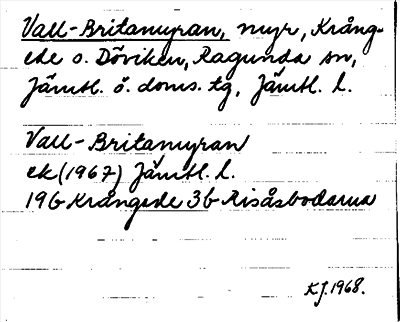 Vall-Britamyran, myr, Krång-
ede o. Döviken, Ragunda sn,
Jämtl. ö. doms. tg, Jämtl. l.
Vall-Britamyran
ek (1967) Jämtl. l.
19G Krångede 3b Risåsbodarna
KJ. 1968.